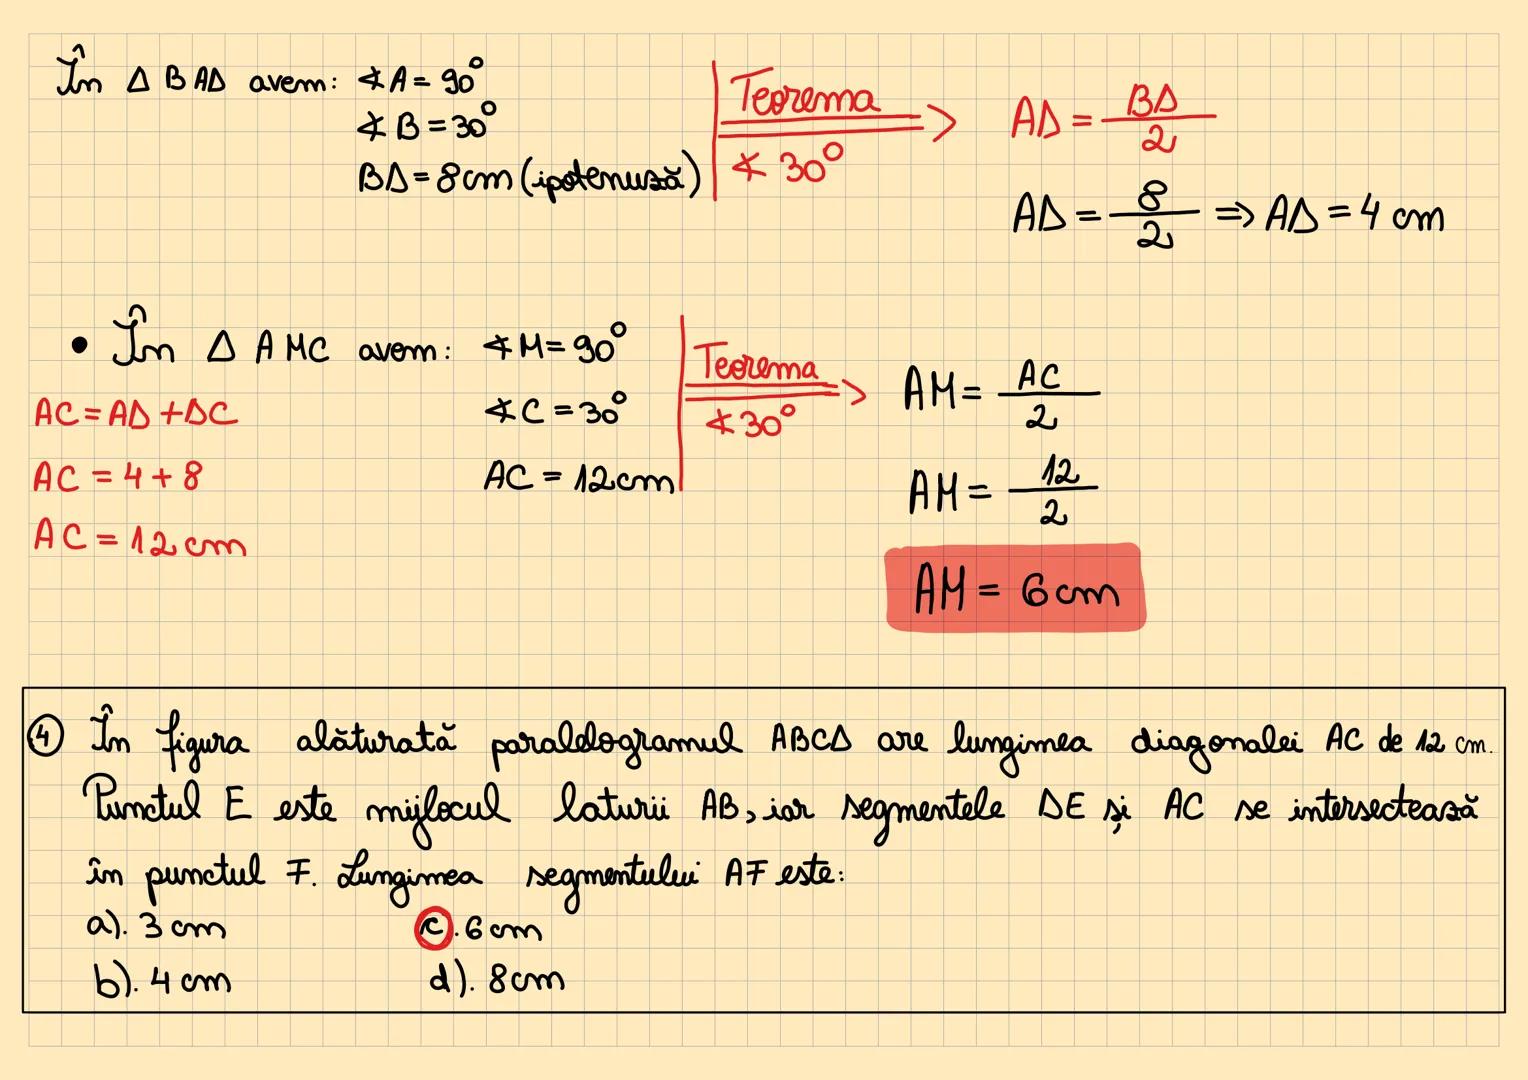 În Δ BAD avem: ∢A = 90°
∢B = 30°
BD = 8 cm (ipotenuză)
Teorema
∢ 30°
=> AD = BD/2
AD = 8/2 => AD = 4 cm
• În Δ AMC avem: ∢M = 90°
∢C = 30°
AC = 12 cm
AC = AD + DC
AC = 4 + 8
AC = 12 cm
Teorema
∢ 30°
=> AM = AC/2
AM = 12/2
AM = 6 cm
④ În figura alăturată paralelogramul ABCD are lungimea diagonalei AC de 12 cm.
Punctul E este mijlocul laturii AB, iar segmentele DE și AC se intersectează
în punctul F. Lungimea segmentului AF este:
a). 3 cm
c). 6 cm
b). 4 cm
d). 8 cm